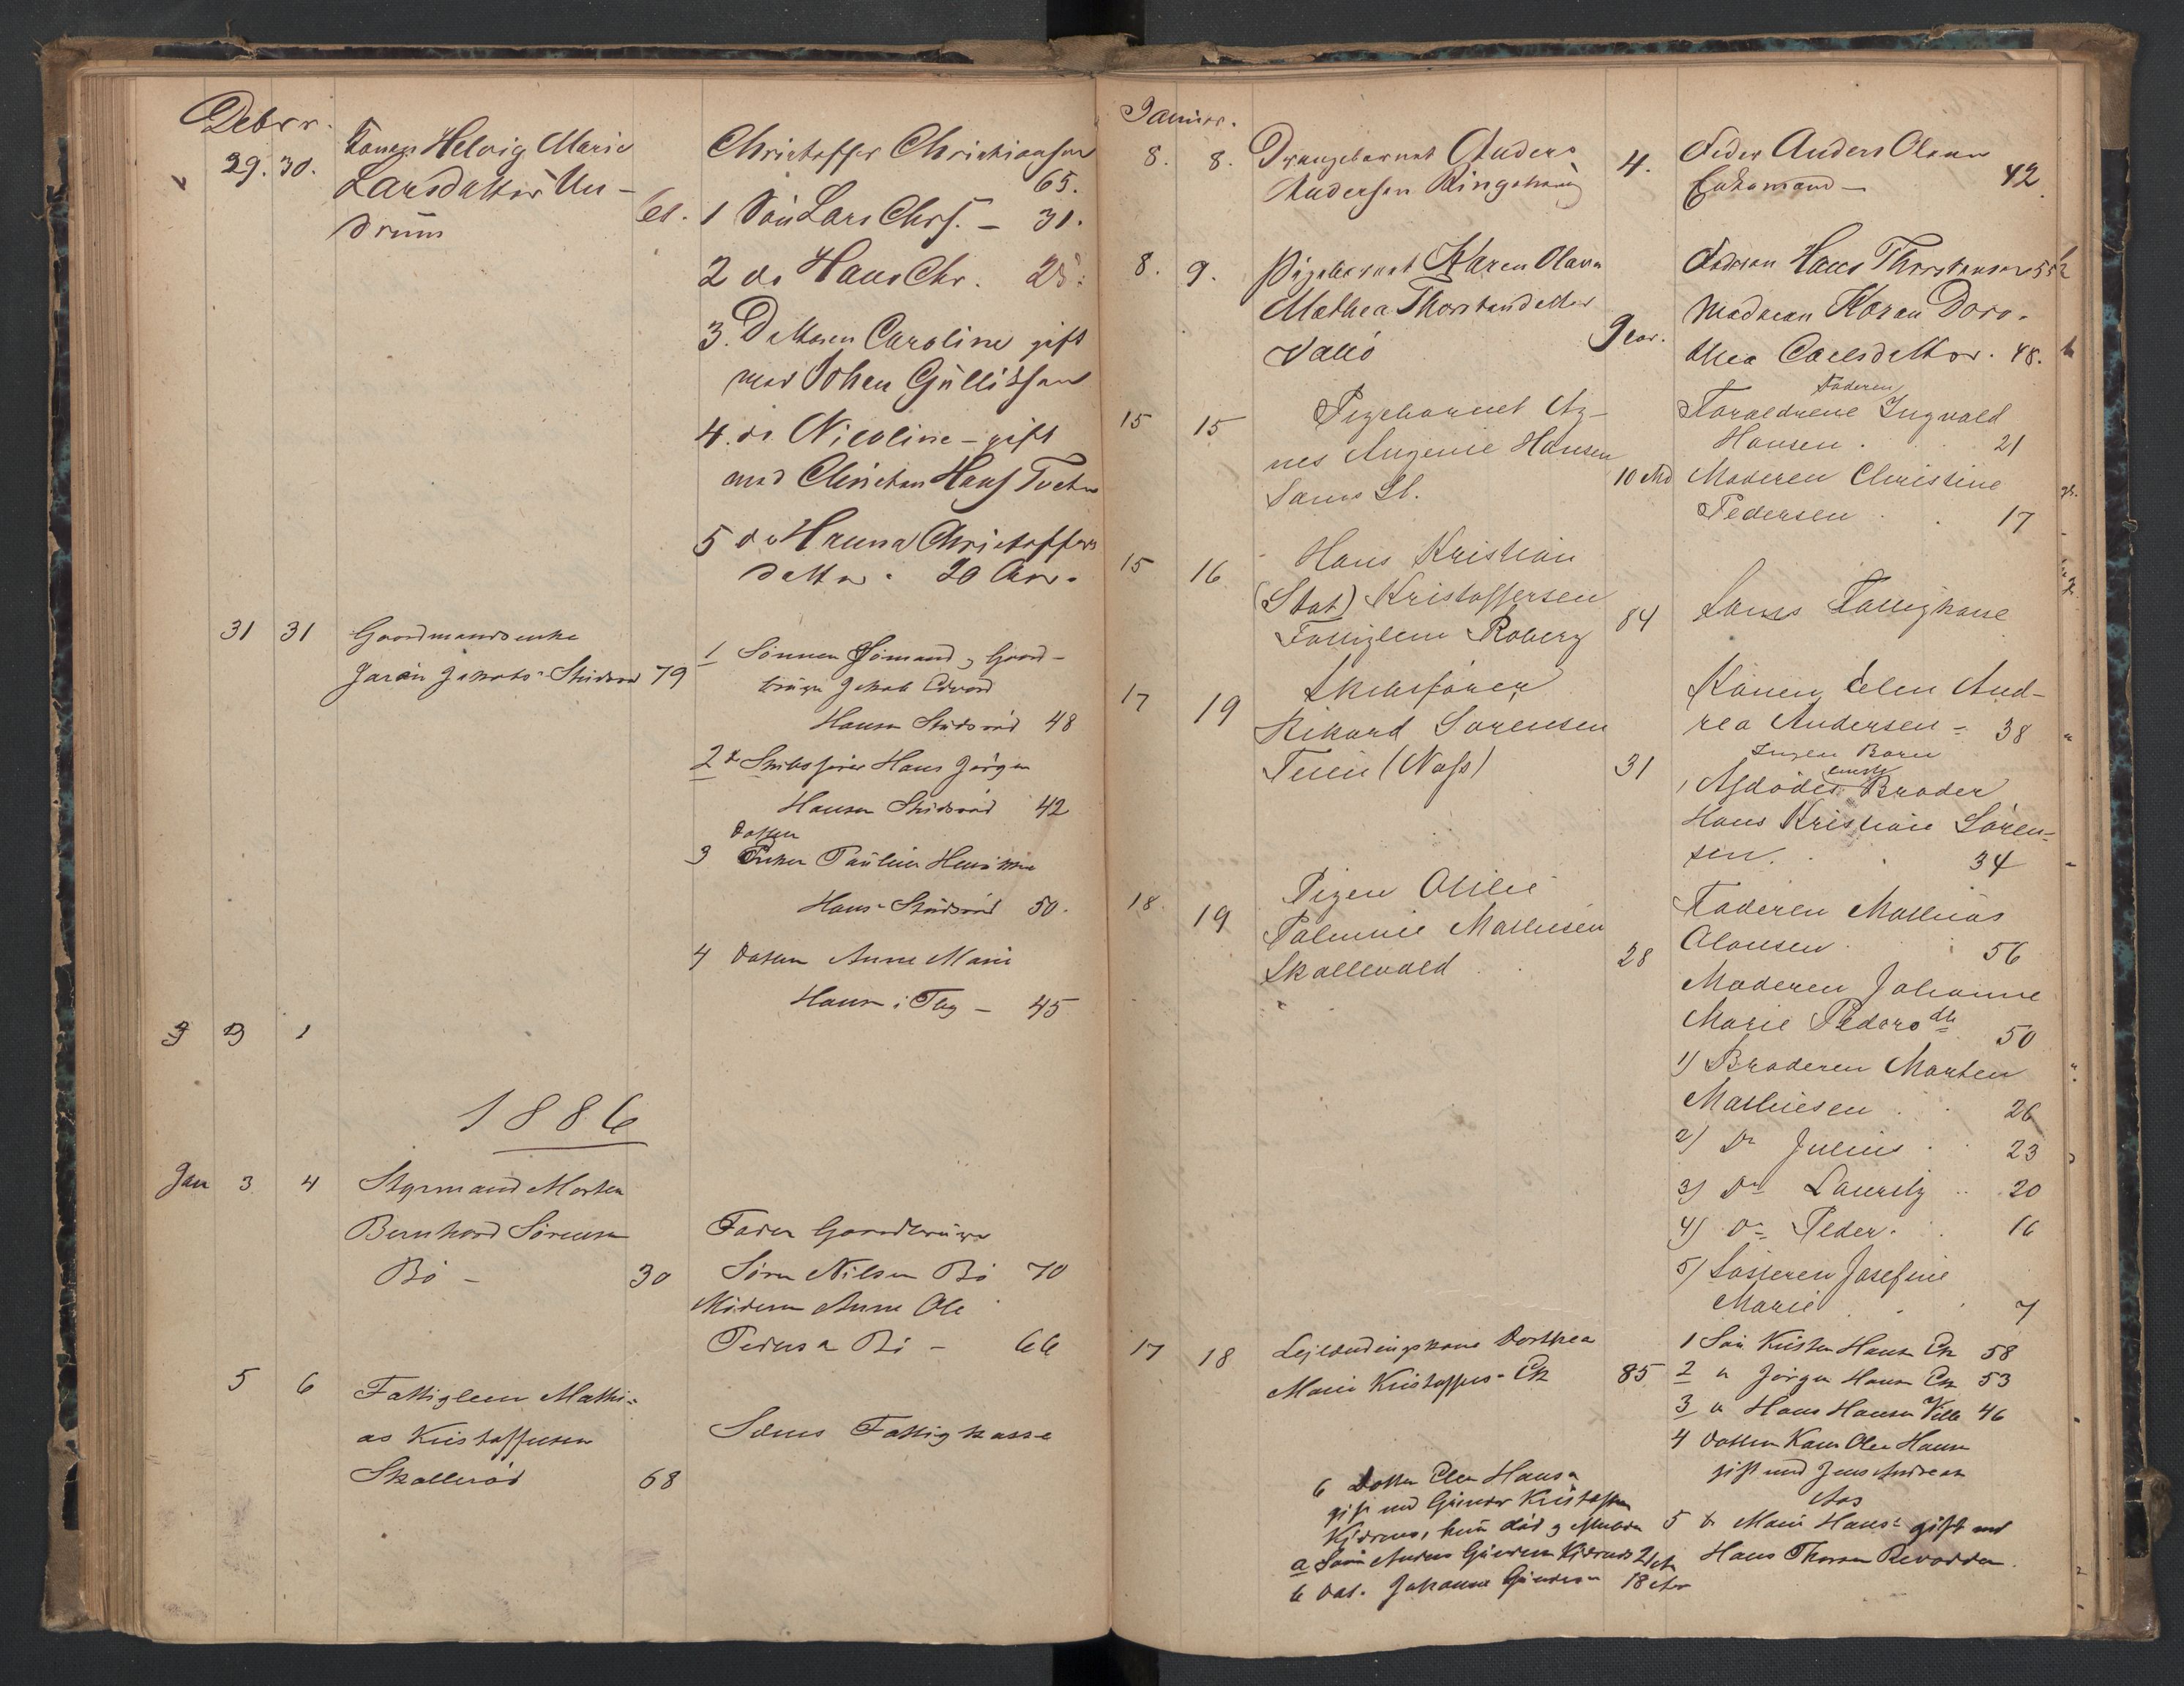 Debr.
29. 30. Konen Helvig Marie
Larsdatter Un-
drum 61.
Christoffer Christiansen
65.
1 Søn Lars Chrs. - 31.
2 do Hans Chr. 25.
3. Datteren Caroline gift
med Johan Gulliksen
4. do Nicoline - gift
med Christen Hans
5 do Hanna Christoffers
datter. 20 Aar.
31 31 Gaardmandsenke
79
1 Sønnen Sømand, Gaard-
bruger Jakob Edvard
Hansen 48
2 do Skibsfører Hans Jørgen
Hansen 42
Datter
3 Enken
Hans 50.
4 Datteren Anne Marie
Hansen i - 45
3 3 1
1886
Jan 3 4 Styrmand Morten
Bernhard Sørensen
Bø - 30
Fader Gaardbruger
Søren Nilsen Bø 70
Moderen Anne Ole
Pedersen Bø - 66
5 6 Fattiglem Mathi-
as Kristoffersen
Skallerød 68
Sems Fattigkasse
Januar.
8. 8. Drengebarnet Anders
Andersen Ringshaug 4.
Feder Anders Olsen
Enkemand - 42
8. 9. Pigebarnet Karen Olava
Mathea Thorstendatter
Valø 9 aar.
Faderen Hans Thorstensen 52
Moderen Karen Doro-
thea Carlsdatter. 48.
15 15 Pigebarnet Ag-
nes Augenie Hansen
Sams St. 10 Md
Faderen
Foreldrene Ingvald
Hansen. 21
Moderen Christine
Pedersen. 17
15 16 Hans Kristian
(Stat) Kristoffersen
Fattiglem Roberg 84
Sems Fattigkasse
17 19 Skibsfører
Rikard Sørensen
Teien (Næss) 31
Konen, Elen And-
rea Andersen - 38
Ingen Børn
eneste
1 Afdødes Broder
Hans Kristian Søren-
sen. 34
18. 19 Pigen Otilie
Palmine Mathisen
Skallevold 28
Faderen Mathias
Olausen 56
Moderen Johanne
Marie Pedersdtr 50
1) Broderen Morten
Mathiesen 26
2) Do Julius 23
3) Do Lauritz 20
4) Do Peder. 16
5) Søsteren Josefine
Marie 7
17 18 Leilændingskone Dorthea
Marie Kristoffers- Ek 85
1 Søn Kristen Hansen Ek 58
2 " Jørgen Hansen Ek 53
3 " Hans Hansen Velle 46
4 Datteren Karen Olea Hansen
gift med Jens Andreas
Aas
5 do Marie Hans- gift med
Hans Thoresen
6 Datter Elen Hansen
gift med Gunder Kristoffersen
hun død og efterladt
a Søn Anders Gundersen 21 Aar
b Dat. Johanne Gundersen 18 Aar